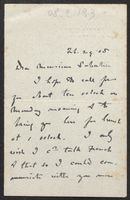 26. 2. 05
Dear Monsieur
I hope to call for
you about ten o'clock on
Monday morning & to
bring you here for lunch
at 1 o'clock. I only
wish I could talk French
& that so I could com-
municate with you more